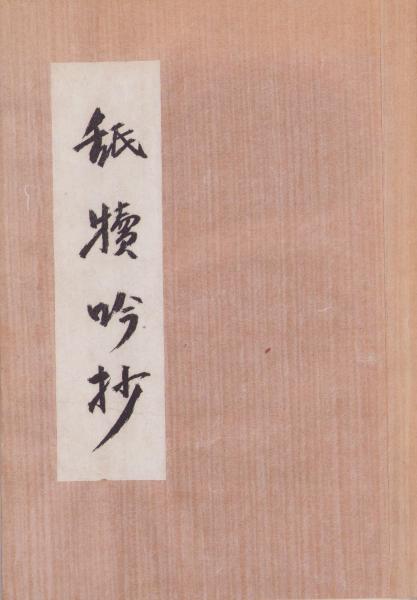 舐犢吟抄